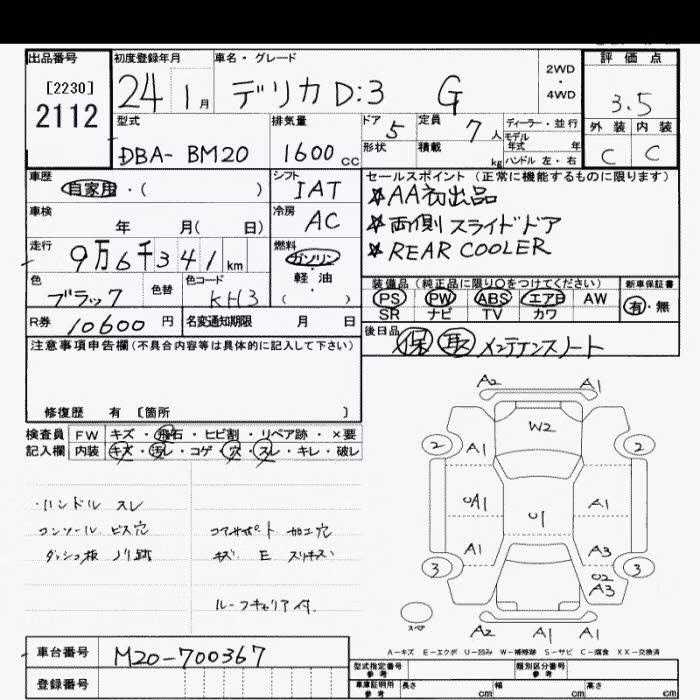 出品番号
[2230]
2112
初度登録年月
24 1月
車名・グレード
デリカ D:3 G
2WD
・
4WD
評価点
3.5
外装 内装
C C
型式
DBA- BM20
排気量
1600 cc
ドア 5
定員 7人
ディーラー・並行
モデル
年式 年
形状
積載 kg
ハンドル 左・右
車歴
自家用・( )
シフト
IAT
セールスポイント (正常に機能するものに限ります)
AA初出品
両側スライドドア
REAR COOLER
車検
年 月( 日)
冷房
AC
走行
9万6千341km
燃料
ガソリン
・
軽油
( )
色
ブラック
色替
色コード
KH3
装備品 (純正品に限り○をつけてください)
PS PW ABS エアB AW
SR ナビ TV カワ
新車保証書
有・無
R券 10600 円
名変通知期限 月 日
後日品
保 取 メンテナンスノート
注意事項申告欄 (不具合内容等は具体的に記入して下さい)
修復歴 有 [箇所 ]
検査員
記入欄
FW キズ・飛石・ヒビ割・リペア跡・×要
内装 キズ・汚レ・コゲ・穴・スレ・キレ・破レ
・ハンドル スレ
コンソール ビス穴
ダッシュ板 ノリ跡
加工穴
キズ E スリキズ
ルーフキャリア付.
A2 A1
W2
2 A1 2
UA1 U1 A1
A1 A3
3 U2 3
A3
スペア
A2 A1 A1
A-キズ E-エクボ U-凹み W-補修跡 S-サビ C-腐食 XX-交換済
車台番号
M20-700367
登録番号
型式指定番号
参考
類別区分番号
参考
車庫証明用
参考
長さ cm 幅 cm 高さ cm